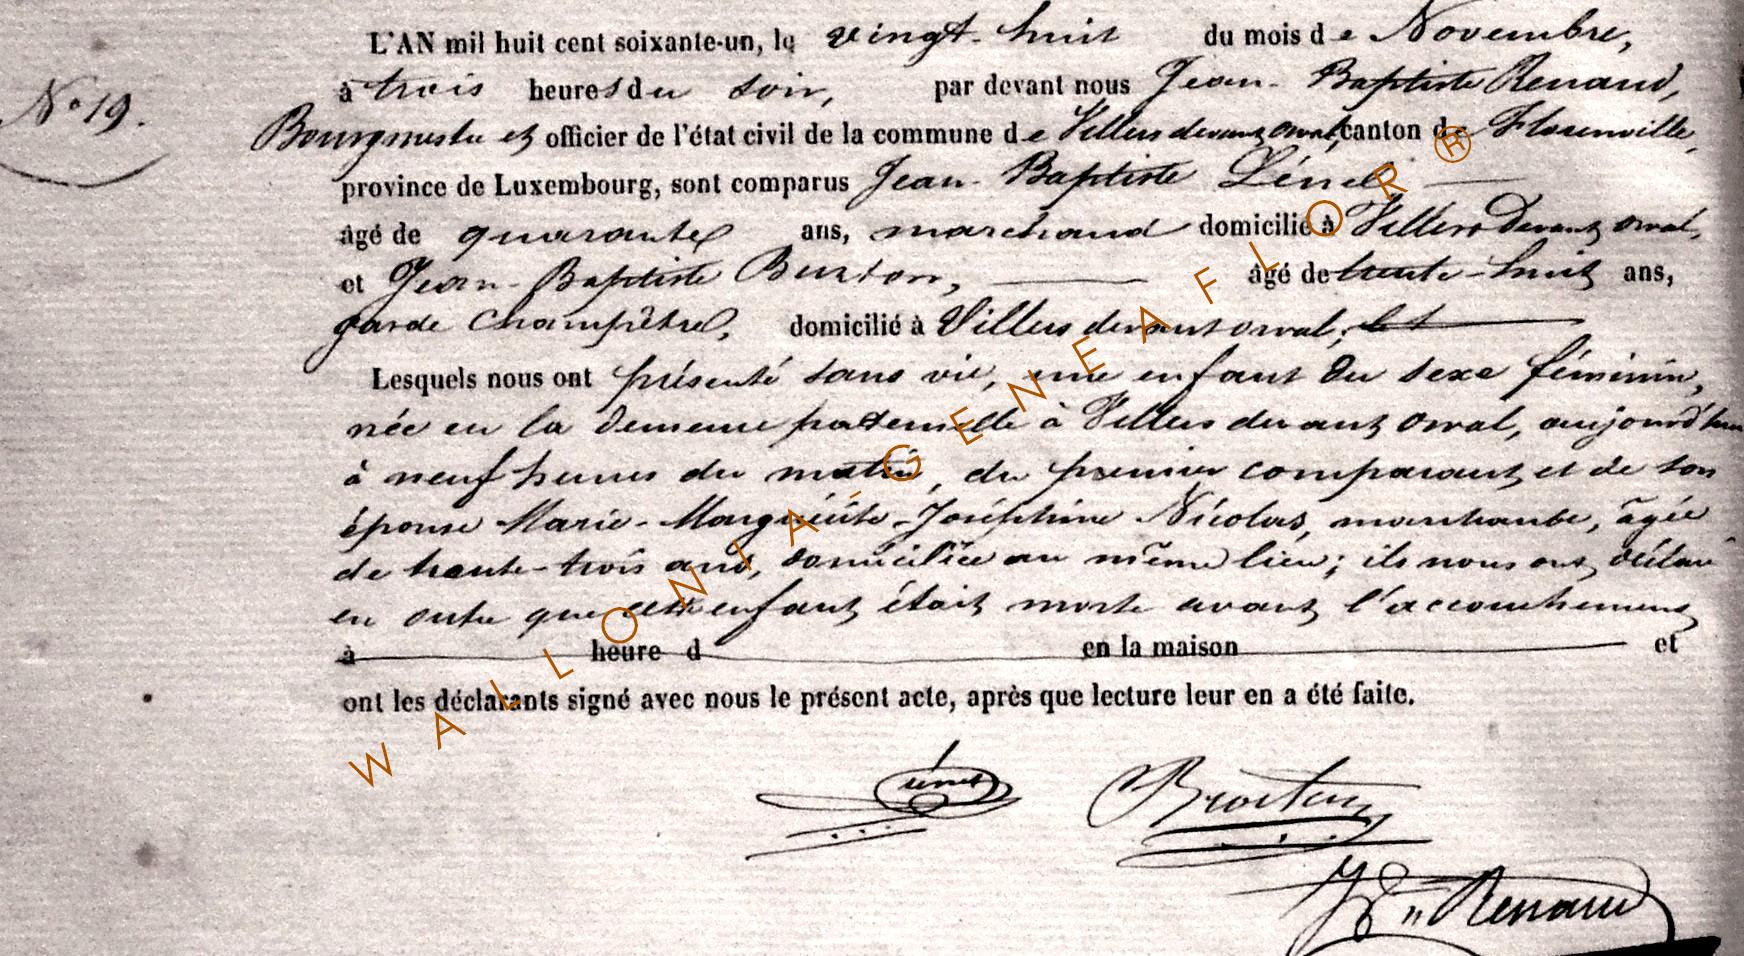 L'AN mil huit cent soixante-un, le vingt-huit du mois de Novembre,
à trois heures du soir, par devant nous Jean-Baptiste Renaud,
N° 19.
Bourgmestre et officier de l'état civil de la commune de Villers devant orval, canton de Florenville,
province de Luxembourg, sont comparus Jean-Baptiste Lénel
âgé de quarante ans, marchand domicilié à Villers Devant orval,
et Jean-Baptiste âgé de trente-huit ans,
garde champêtre, domicilié à Villers devant orval;
Lesquels nous ont présenté sans vie, une enfant du sexe féminin,
née en la demeure paternelle à Villers devant orval, aujourd'hui
à neuf heures du matin, du premier comparant et de son
épouse Marie-Marguérite-Joséphine Nicolas, marchande, âgée
de trente-trois ans, domiciliée au même lieu; ils nous ont déclaré
en outre que cette enfant était morte avant l'accouchement
à heure d en la maison et
ont les déclarants signé avec nous le présent acte, après que lecture leur en a été faite.
Renaud
WALLONIA-GENEAFLOR®